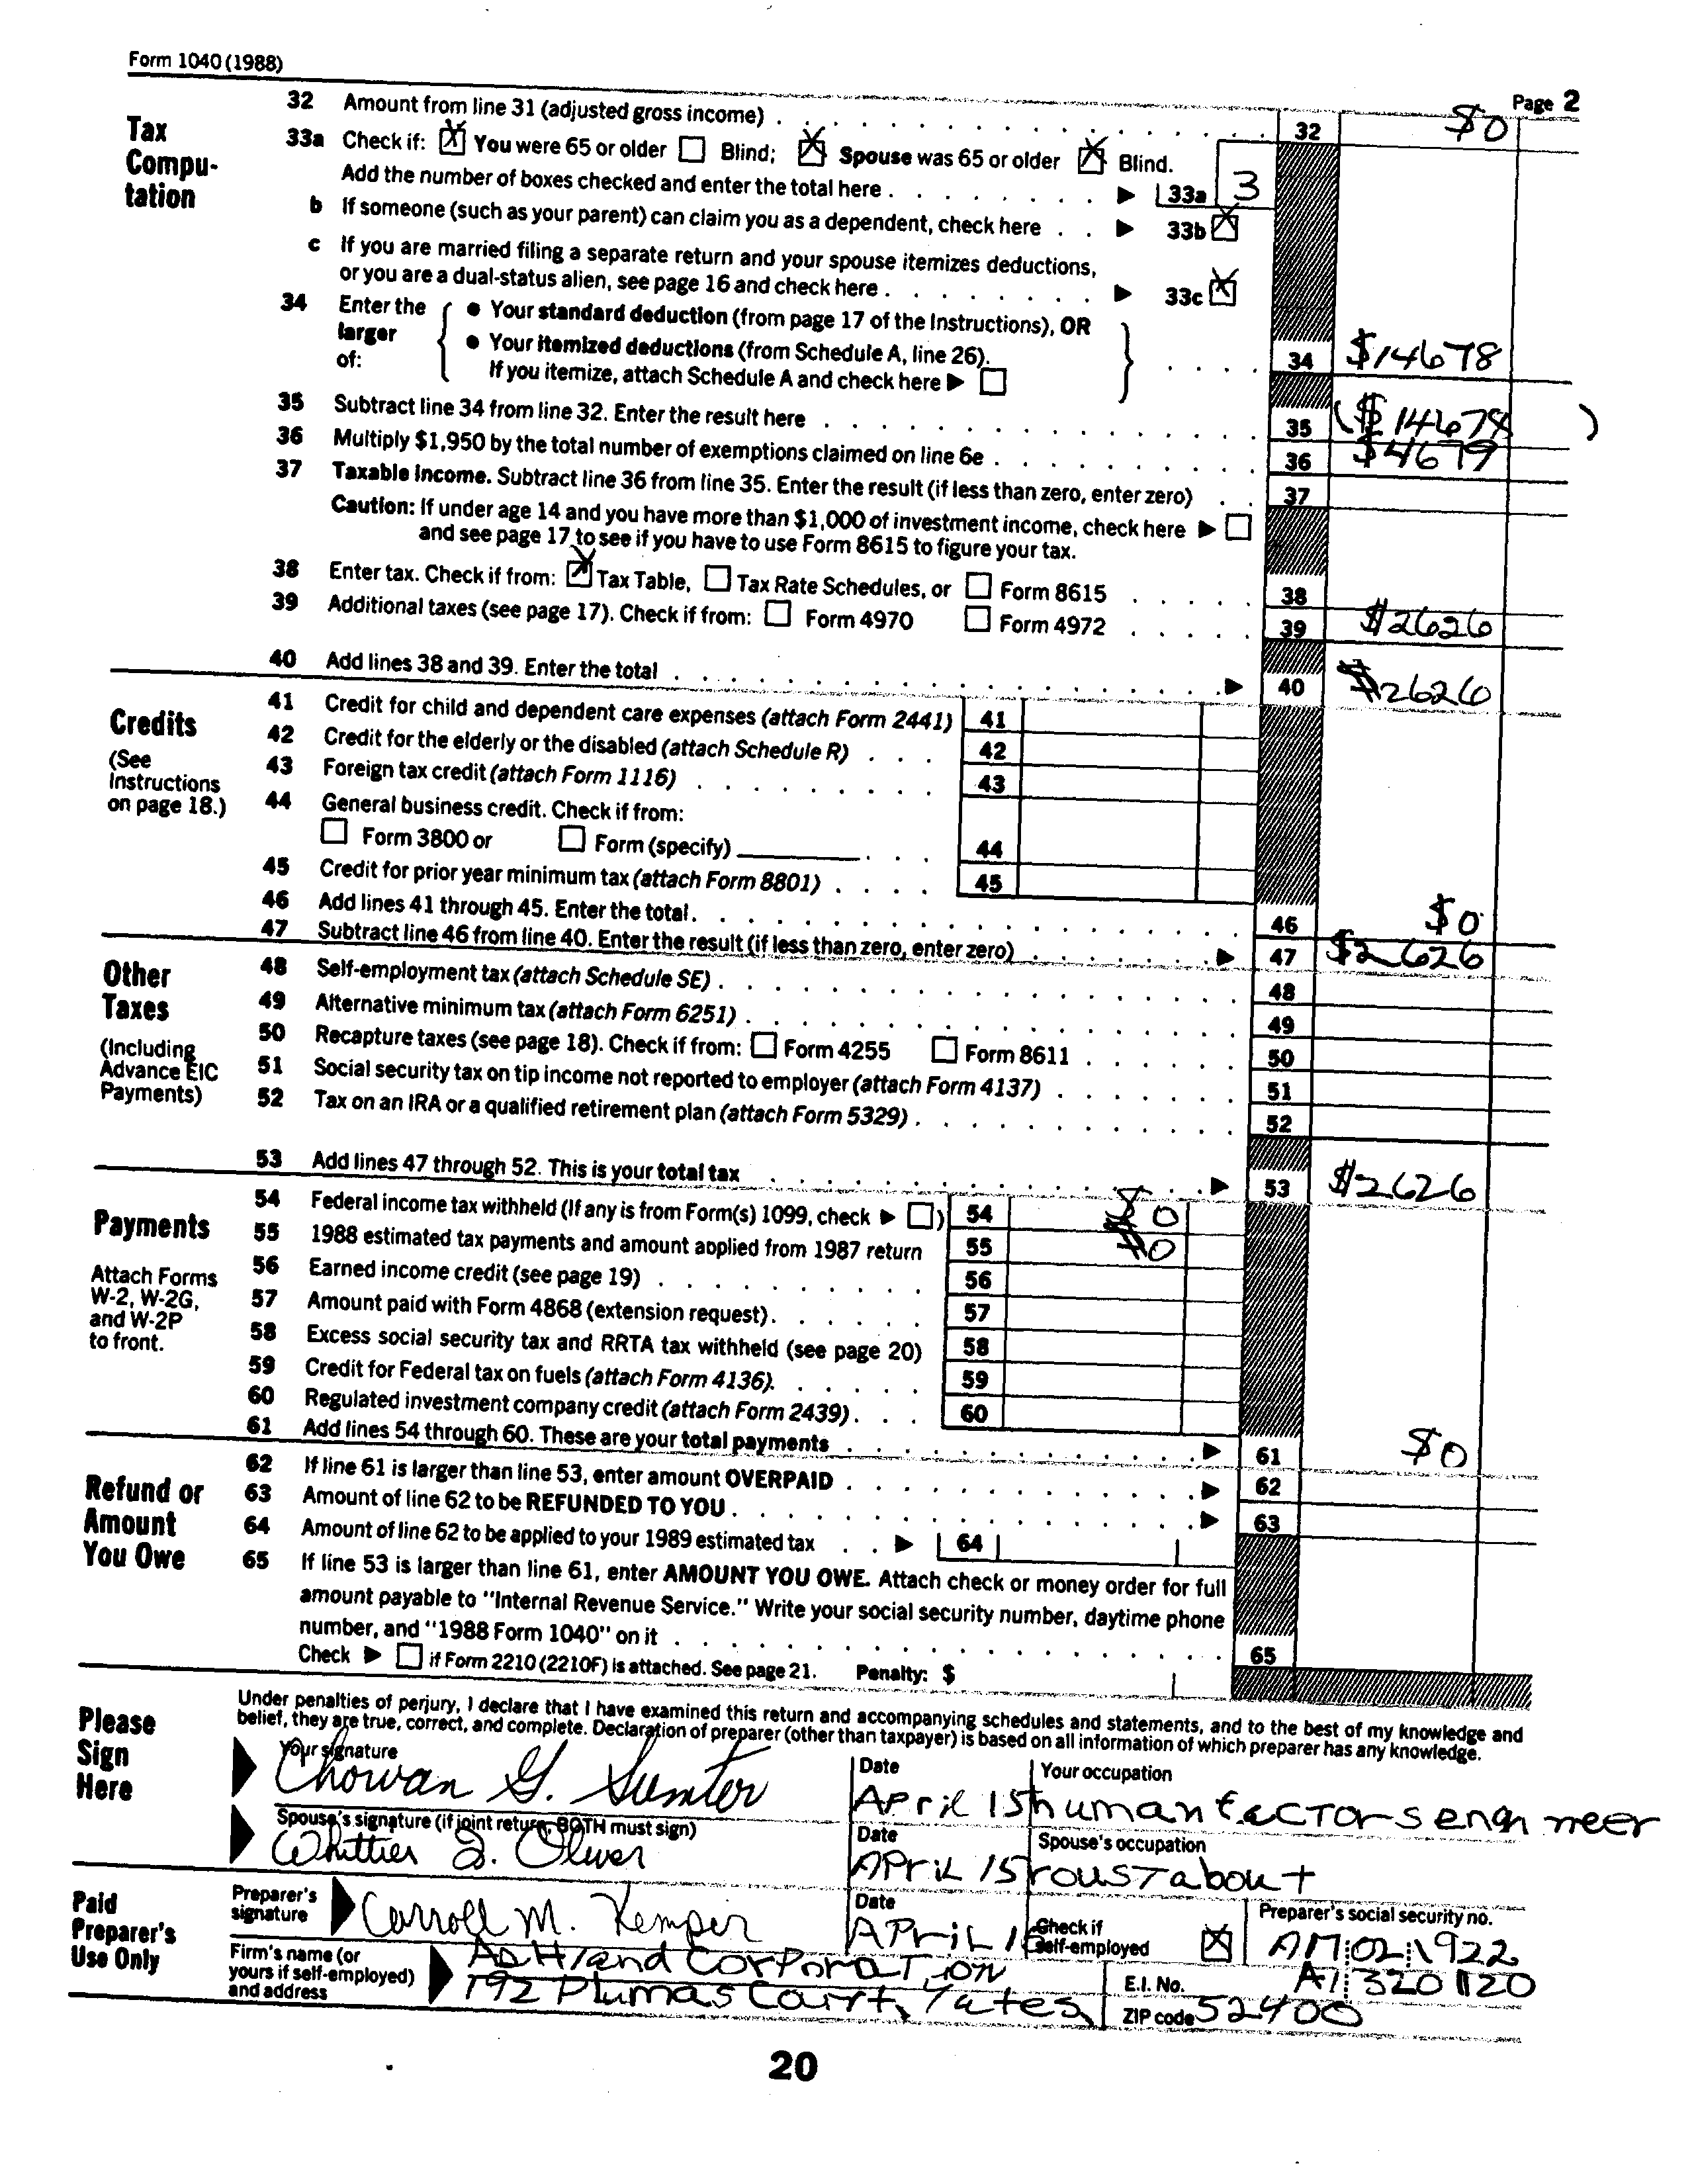 Form 1040 (1988)
Page 2
Tax Compu-tation
32 Amount from line 31 (adjusted gross income) 32 $0
33a Check if: X You were 65 or older Blind; X Spouse was 65 or older X Blind.
Add the number of boxes checked and enter the total here 33a 3
b If someone (such as your parent) can claim you as a dependent, check here 33b X
c If you are married filing a separate return and your spouse itemizes deductions,
or you are a dual-status alien, see page 16 and check here 33c X
34 Enter the larger of:
● Your standard deduction (from page 17 of the Instructions), OR
● Your itemized deductions (from Schedule A, line 26).
If you itemize, attach Schedule A and check here 34 $14678
35 Subtract line 34 from line 32. Enter the result here 35 ($14678)
36 Multiply $1,950 by the total number of exemptions claimed on line 6e 36 $4679
37 Taxable income. Subtract line 36 from line 35. Enter the result (if less than zero, enter zero) 37
Caution: If under age 14 and you have more than $1,000 of investment income, check here
and see page 17 to see if you have to use Form 8615 to figure your tax.
38 Enter tax. Check if from: X Tax Table, Tax Rate Schedules, or Form 8615 38
39 Additional taxes (see page 17). Check if from: Form 4970 Form 4972 39 $2626
40 Add lines 38 and 39. Enter the total 40 $2626
Credits
(See Instructions on page 18.)
41 Credit for child and dependent care expenses (attach Form 2441) 41
42 Credit for the elderly or the disabled (attach Schedule R) 42
43 Foreign tax credit (attach Form 1116) 43
44 General business credit. Check if from:
Form 3800 or Form (specify) 44
45 Credit for prior year minimum tax (attach Form 8801) 45
46 Add lines 41 through 45. Enter the total. 46 $0
47 Subtract line 46 from line 40. Enter the result (if less than zero, enter zero) 47 $2626
Other Taxes
(Including Advance EIC Payments)
48 Self-employment tax (attach Schedule SE) 48
49 Alternative minimum tax (attach Form 6251) 49
50 Recapture taxes (see page 18). Check if from: Form 4255 Form 8611 50
51 Social security tax on tip income not reported to employer (attach Form 4137) 51
52 Tax on an IRA or a qualified retirement plan (attach Form 5329) 52
53 Add lines 47 through 52. This is your total tax 53 $2626
Payments
Attach Forms W-2, W-2G, and W-2P to front.
54 Federal income tax withheld (If any is from Form(s) 1099, check ) 54 $0
55 1988 estimated tax payments and amount applied from 1987 return 55 $0
56 Earned income credit (see page 19) 56
57 Amount paid with Form 4868 (extension request). 57
58 Excess social security tax and RRTA tax withheld (see page 20) 58
59 Credit for Federal tax on fuels (attach Form 4136). 59
60 Regulated investment company credit (attach Form 2439) 60
61 Add lines 54 through 60. These are your total payments 61 $0
Refund or Amount You Owe
62 If line 61 is larger than line 53, enter amount OVERPAID 62
63 Amount of line 62 to be REFUNDED TO YOU 63
64 Amount of line 62 to be applied to your 1989 estimated tax 64
65 If line 53 is larger than line 61, enter AMOUNT YOU OWE. Attach check or money order for full
amount payable to "Internal Revenue Service." Write your social security number, daytime phone
number, and "1988 Form 1040" on it 65
Check if Form 2210 (2210F) is attached. See page 21. Penalty: $
Please Sign Here
Under penalties of perjury, I declare that I have examined this return and accompanying schedules and statements, and to the best of my knowledge and
belief, they are true, correct, and complete. Declaration of preparer (other than taxpayer) is based on all information of which preparer has any knowledge.
Your signature Date Your occupation
Chowan G. Sumter April 15 human factors engineer
Spouse's signature (if joint return, BOTH must sign) Date Spouse's occupation
Whittier Oliver April 15 roustabout
Paid Preparer's Use Only
Preparer's signature Carroll M. Kemper Date April Check if self-employed X Preparer's social security no. AM:02:1922
Firm's name (or yours if self-employed) and address
Ashland Corporation E.I. No. A1:3201120
192 Plumas Court, Yates ZIP code 52400
20